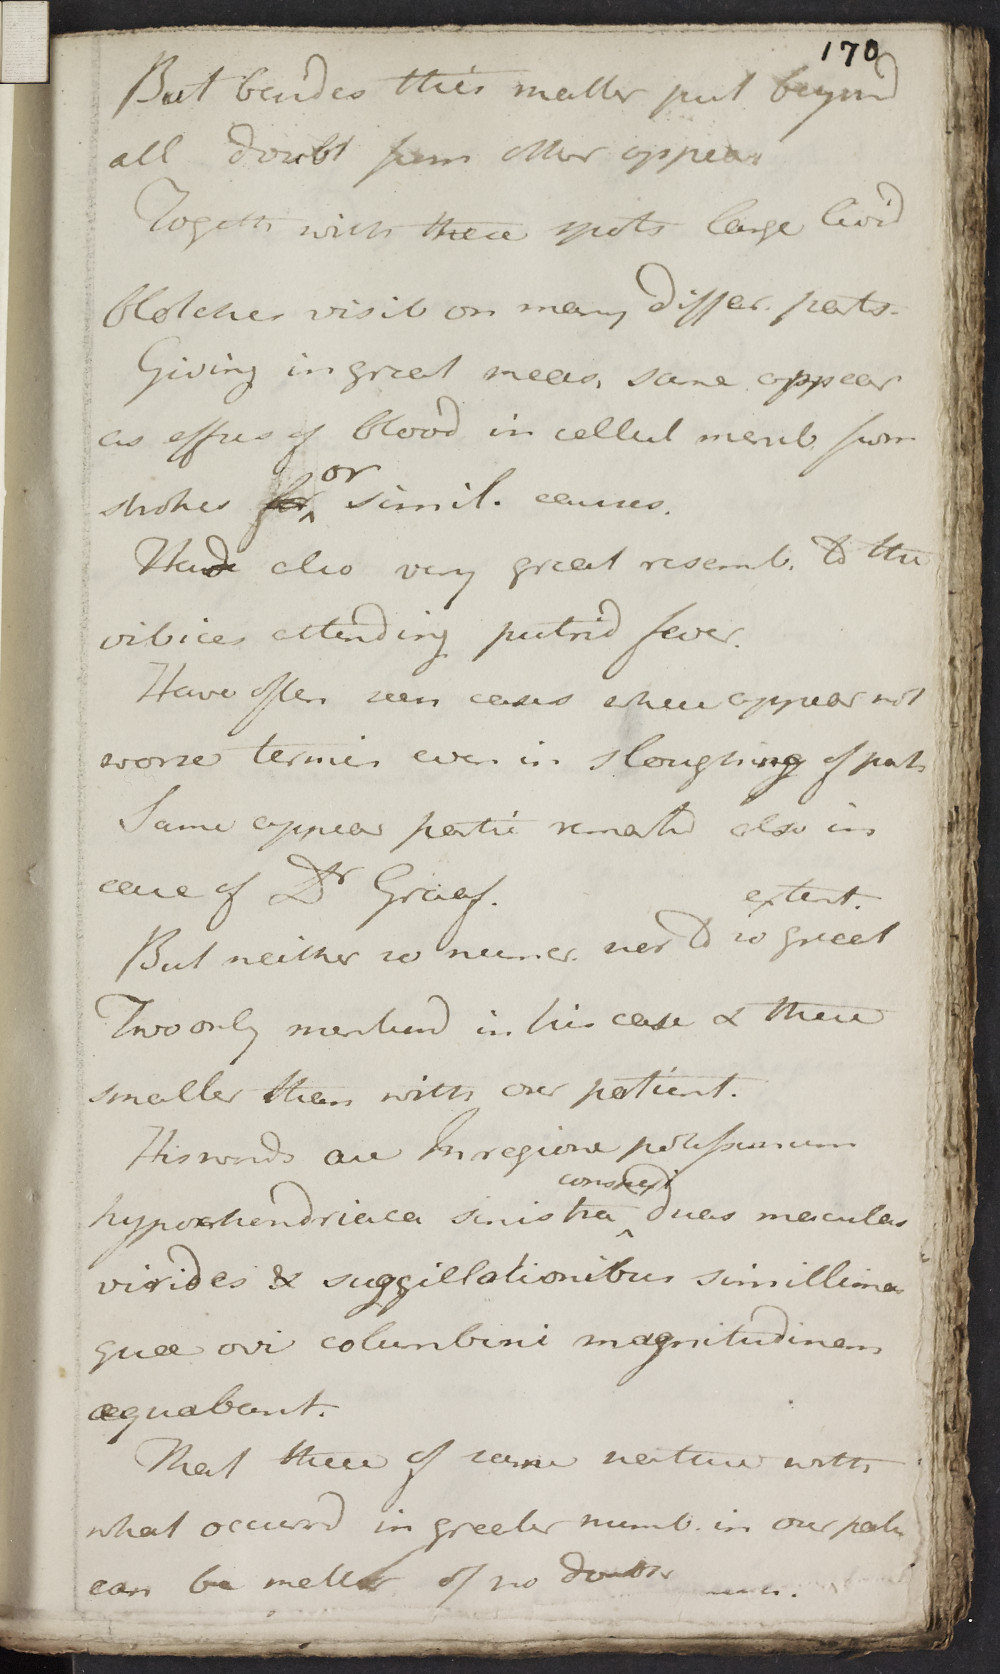 170
But besides this matter put beyond
all doubt from other appear
Togeth with these spots large livid
blotches visib on many differ. parts.
Giving in great meas. same appear
as effus of blood in cellul memb from
strokes for or simil. causes.
Had also very great resemb. to the
vibices attending putrid fever.
Have often seen cases where appear not
worse termin even in sloughing of parts
Same appear partic remarkd also in
case of Dr Graaf.
extent.
But neither so numer. nor to so great
Two only mentiond in his case & these
smaller than with our patient.
His words are In regione potissimum
conspexi
hypochondriaca sinistra duas maculas
virides & suggillationibus simillimas
quae ovi columbini magnitudinem
aequabant.
That these of same nature with
what occurrd in greater numb. in our patn
can be matter of no doubt